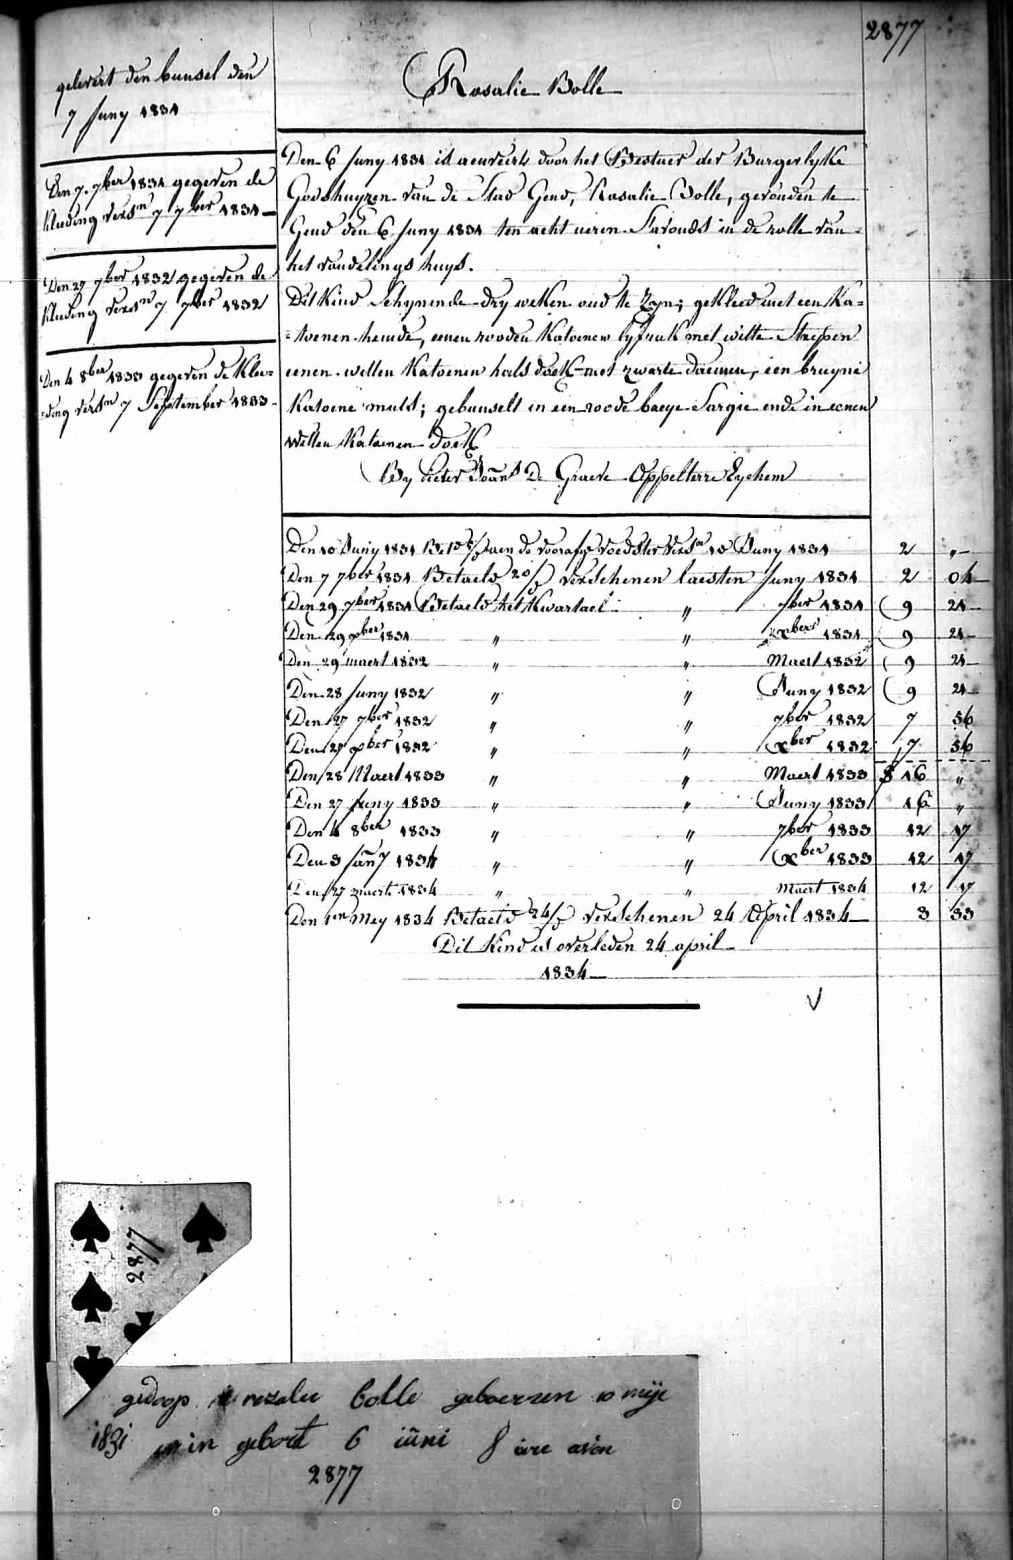 2877
gelevert den bunsel den
7 Juny 1831
Rosalie Bolle
Den 7. 7ber 1831 gegeven de
kluding versn 7 7ber 1831
Den 27 7ber 1832 gegeven de
kluding versn 7 7ber 1832
Den 4 8ber 1833 gegeven de Klee=
=ding versn 7 September 1833
Den 6 Juny 1831 is door het Bestuer der Burgerlyke
Godshuyzen van de Stad Gend, Rosalie Bolle, gevonden te
Gend den 6 Juny 1831 ten acht ueren Savonds in de rolle van
het vondelings huys.
Dit Kind Schynende dry weken oud te Zyn; gekleed met een Ka=
=toenen hemde, eenen rooden Katoenen lyfrak met witte Strepen
eenen witten Katoenen hals doek met zwarte, een bruyne
Katoene muts; gebunselt in een roode baeye Sargie ende in eenen
witten Katoenen doek
By Pieter Joans De Graeve Appelterre Eychem
Den 10 Juny 1831 Bet aen de voedster versn 10 Juny 1831 2 „
Den 7 7ber 1831 Betaeld 20/ verschenen laesten Juny 1831 2 04
Den 29 7ber 1831 Betaeld het Kwartael „ 7ber 1831 9 21
Den 29 xber 1831 „ „ xber 1831 9 21
Den 29 maert 1832 „ „ Maert 1832 9 21
Den 28 Juny 1832 „ „ Juny 1832 9 21
Den 27 7ber 1832 „ „ 7ber 1832 7 56
Den 27 xber 1832 „ „ xber 1832 7 56
Den 28 Maert 1833 „ „ Maert 1833 16 „
Den 27 Juny 1833 „ „ Juny 1833 16 „
Den 4 8ber 1833 „ „ 7ber 1833 12 17
Den 3 Jany 1834 „ „ xber 1833 12 17
Den 27 maert 1834 „ „ Maert 1834 12 17
Den 1en Mey 1834 Betaeld 24/ verschenen 24 April 1834 3 33
Dit Kind is overleden 24 april
1834
2877
gedoop rozalie bolle geboerzen 10 mije
1831 in gebort 6 iuni 8 ure avon
2877